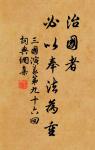 治國者
必以奉法為重
三國演義第九十六回
詞典網集